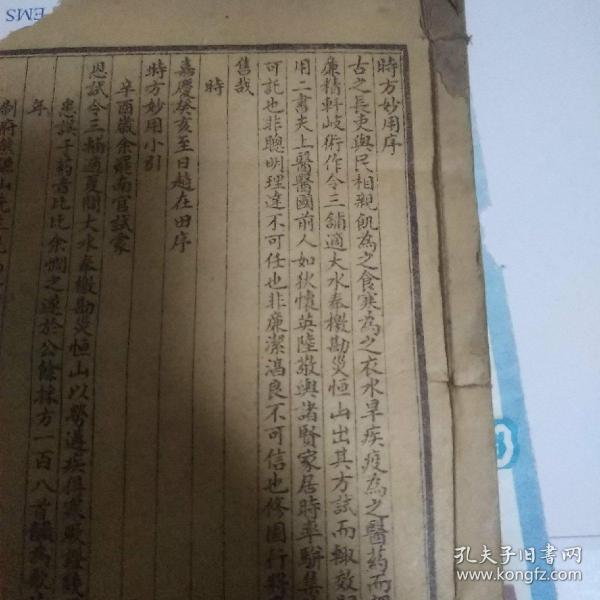 時方妙用序
古之長吏與民相親飢為之食寒為之衣水旱疾疫為之醫藥而
廉精軒岐術作令三輔適大水奉檄勘災恒山出其方試而輒效
用二書夫上醫醫國前人如狄懷英陸敬輿諸賢家居時率駢集
可託也非聰明理達不可任也非廉潔淳良不可信也修園行
舊哉
時
嘉慶癸亥至日趙在田序
時方妙用小引
辛酉歲余罷南宮試蒙
恩試令三輔適夏間大水奉檄勘災恒山以勞遘疾得寒厥證
患誤于藥者比比余憫之遂於公餘採方一百八首
年
制府熊謙山先生
EMS
孔夫子旧书网
www.kongfz.com